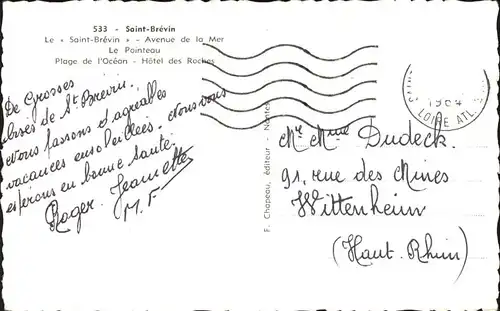 533 - Saint-Brévin
Le « Saint-Brévin » - Avenue de la Mer
Le Pointeau
Plage de l'Océan - Hôtel des Roches
De Grosses
bises de St Brevin.
Nous passons d'agréables
vacances ensoleillées. Nous vous
espérons en bonne santé.
Roger. Jeannette
M. F
F. Chapeau, éditeur - Nantes
1964
LOIRE ATL.
Mr Mme Dudeck.
91, rue des Mines
Wittenheim
(Haut. Rhin)